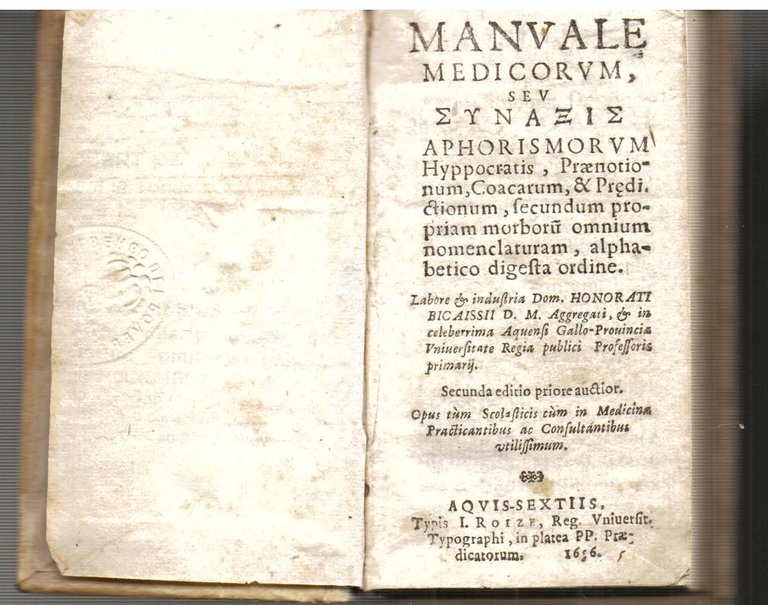 MANVALE
MEDICORVM,
SEV
ΣΥΝΑΞΙΣ
APHORISMORVM
Hyppocratis, Prænotio-
num, Coacarum, & Prędi-
ctionum, ſecundum pro-
priam morborũ omnium
nomenclaturam, alpha-
betico digeſta ordine.
Labore & induſtria Dom. HONORATI
BICAISSII D. M. Aggregati, & in
celeberrima Aquenſi Gallo-Prouinciæ
Vniuerſitate Regia publici Profeſſoris
primarij.
Secunda editio priore auctior.
Opus tùm Scolaſticis cùm in Medicinæ
Practicantibus ac Conſultántibus
vtiliſſimum.
AQVIS-SEXTIIS.
Typis I. ROIZE, Reg. Vniuerſit.
Typographi, in platea PP. Præ-
dicatorum. 1656.